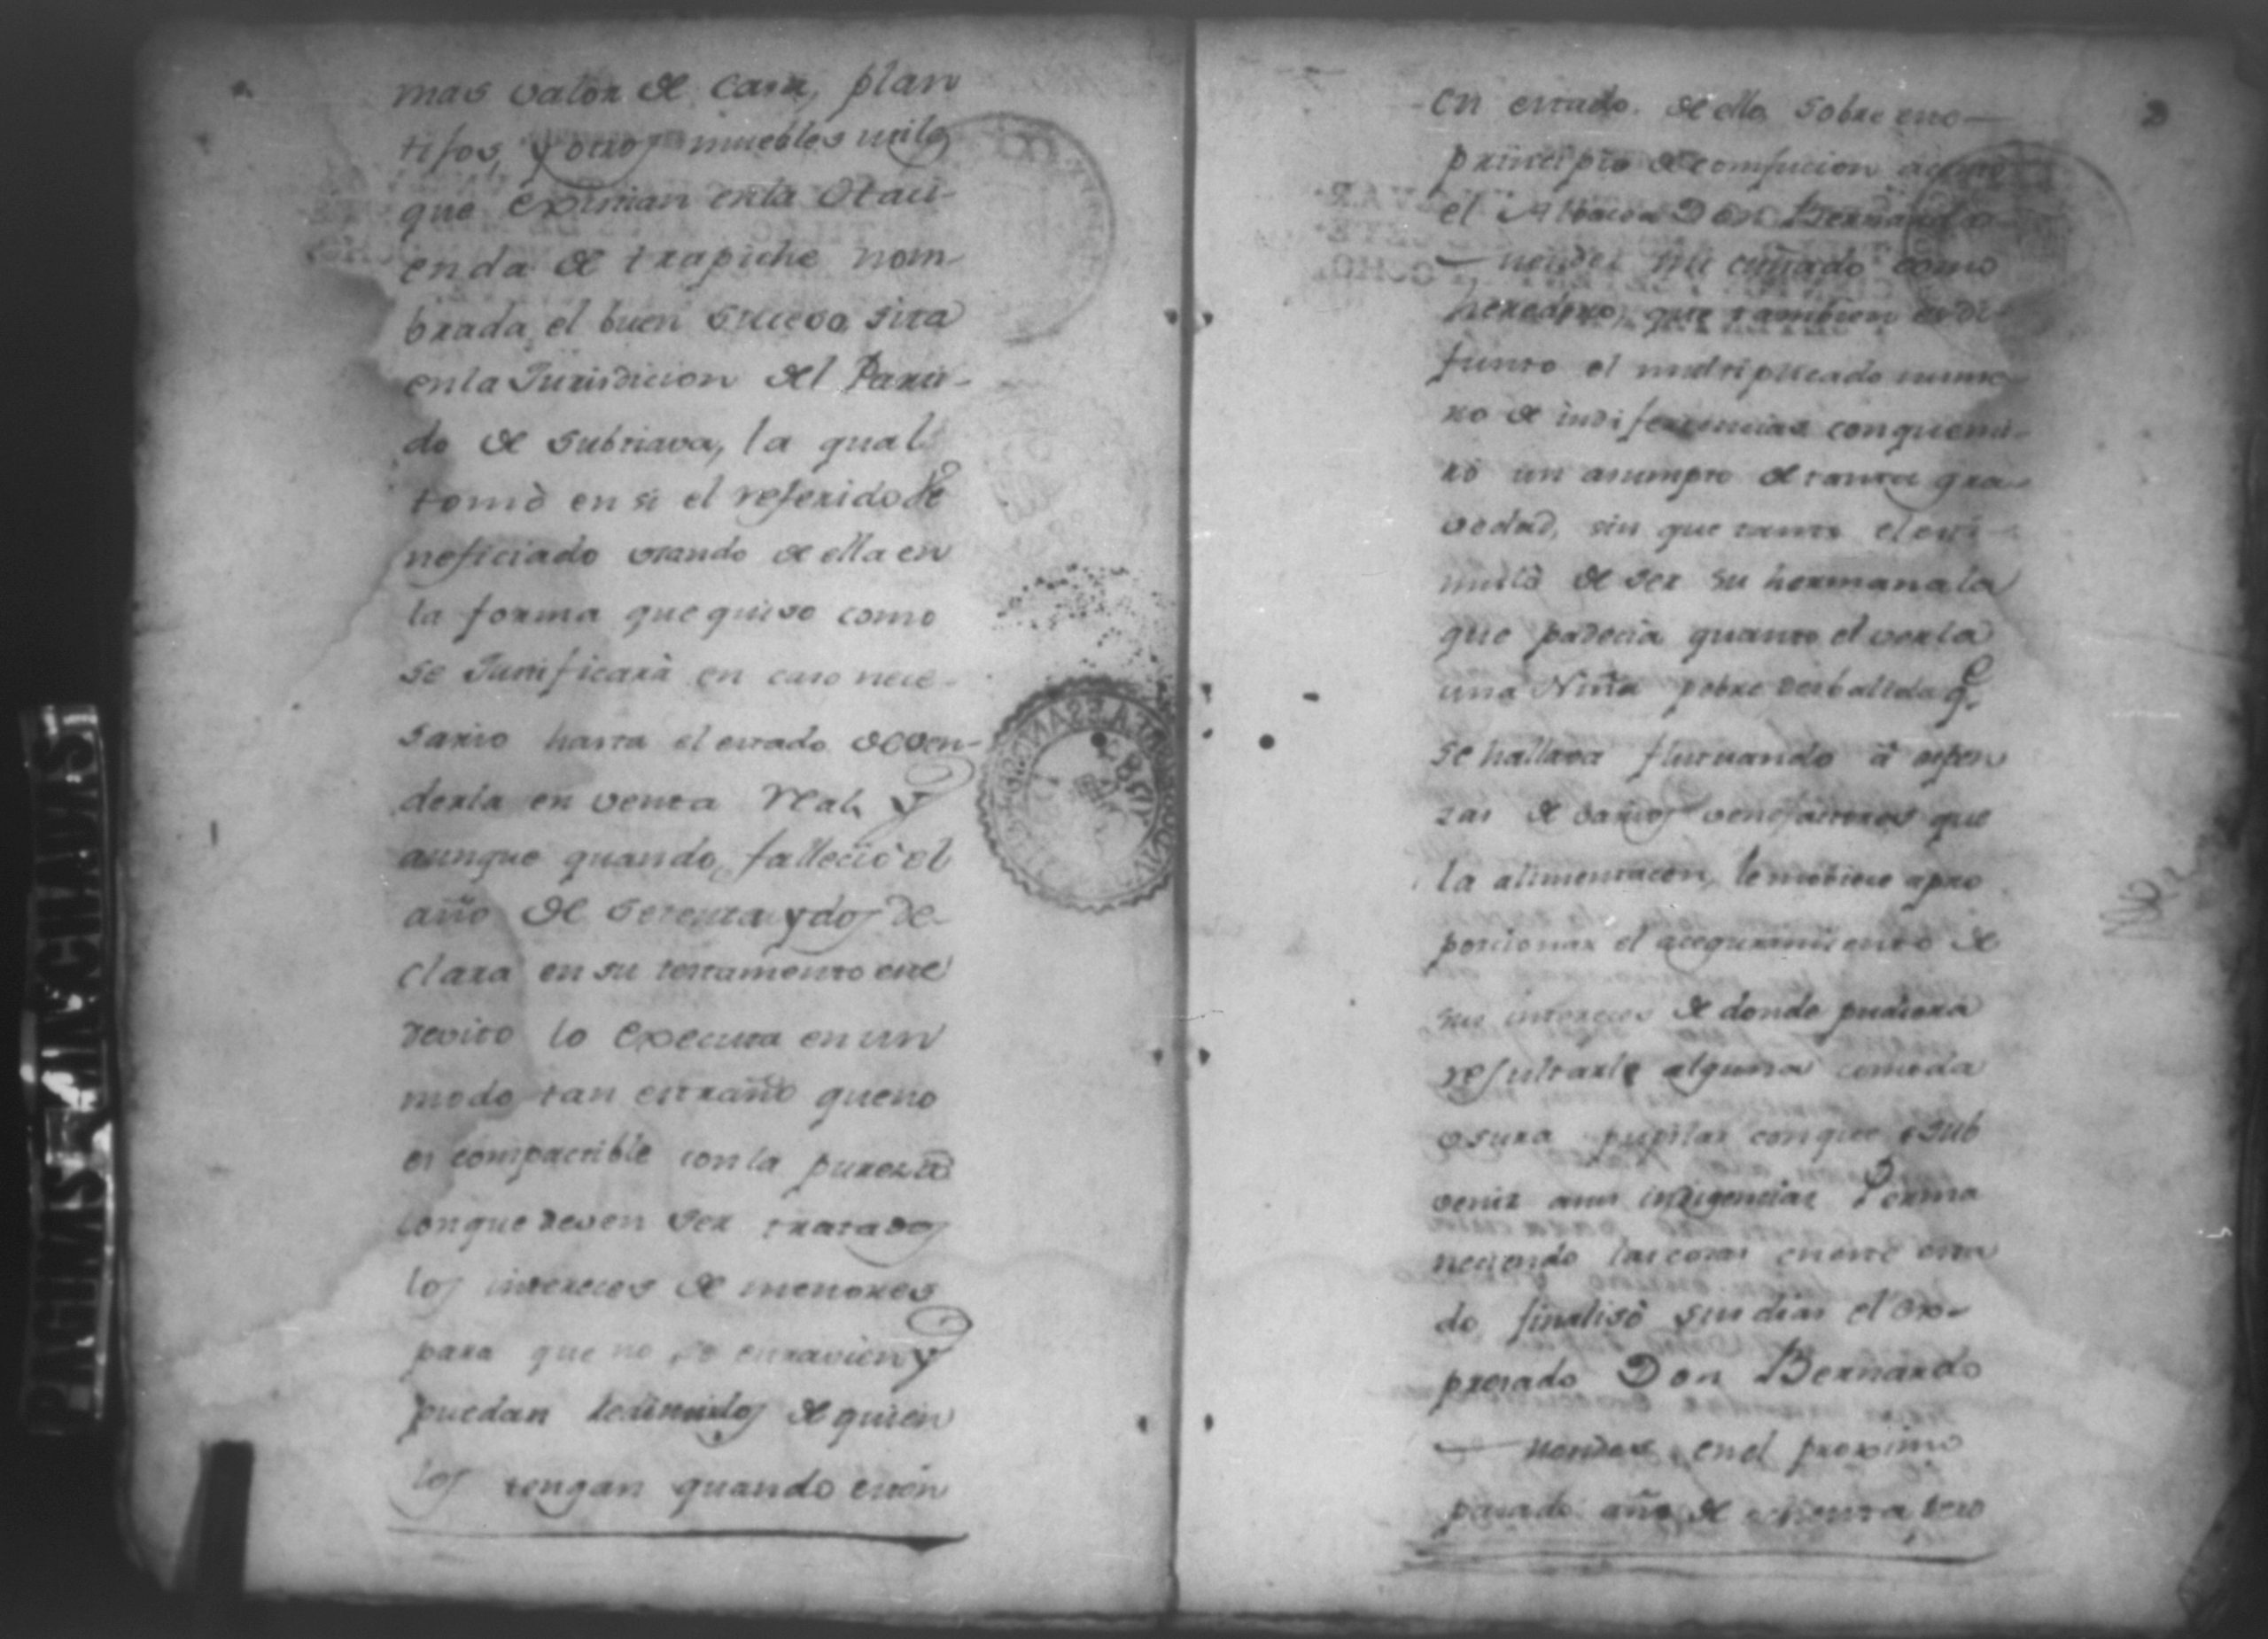 mas valor de casa, plan
tifos, y otros muebles utiles
que existian en la Otaci-
enda de trapiche nom-
brada el buen suceso, sita
en la Jurisdicion del Parti-
do de Subtiava, la qual
tomò en si el referido Be
neficiado usando de ella en
la forma que quiso como
se Justificarà en caso nece-
sario hasta el estado de ven-
derla en venta Real, y
aunque quando falleciò el
año de setenta y dos de-
clara en su testamento este
devito lo executa en un
modo tan estraño que no
es compactible con la pureza
con que deven ser tratados
los intereces de menores
para que no se estravien y
puedan redimirlos de quien
los tengan quando estèn
en estado de ello, sobre este
principio de comfucion
el Albacea Don Bernardo
mi cuñado como
heredero, que tambien es di-
funto el multiplicado nume
ro de indiferencias con que mi-
rò un asumpto de tanta gra-
vedad, sin que tanto el
de ser su hermana la
que padecia quanto el verla
una Niña pobre desbalida q.e
se hallava flutuando â espen
zas de varios venefactores que
la alimentacen, le mobiece apro
porcionar el aceguramiento de
sus intereces de donde pudiera
resultarle alguna comoda
usura pupilar con que sub
venir a sus indigencias Perma
neciendo las cosas en este esta
do finalisò sus dias el ex-
presado Don Bernardo
en el proximo
pasado año de ochenta
PAGINAS MANCHADAS